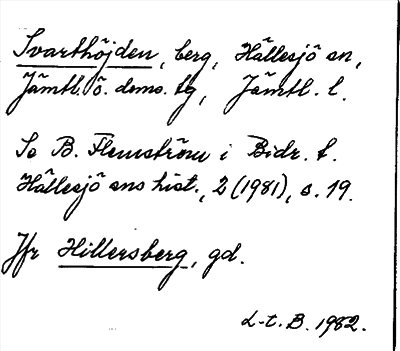 Svarthöjden, berg, Hällesjö sn,
Jämtl. ö. doms. tg, Jämtl. l.
Se B. Flemström i Bidr. t.
Hällesjö sns hist., 2 (1981), s. 19.
Jfr Hillersberg, gd.
L-t. B. 1982.